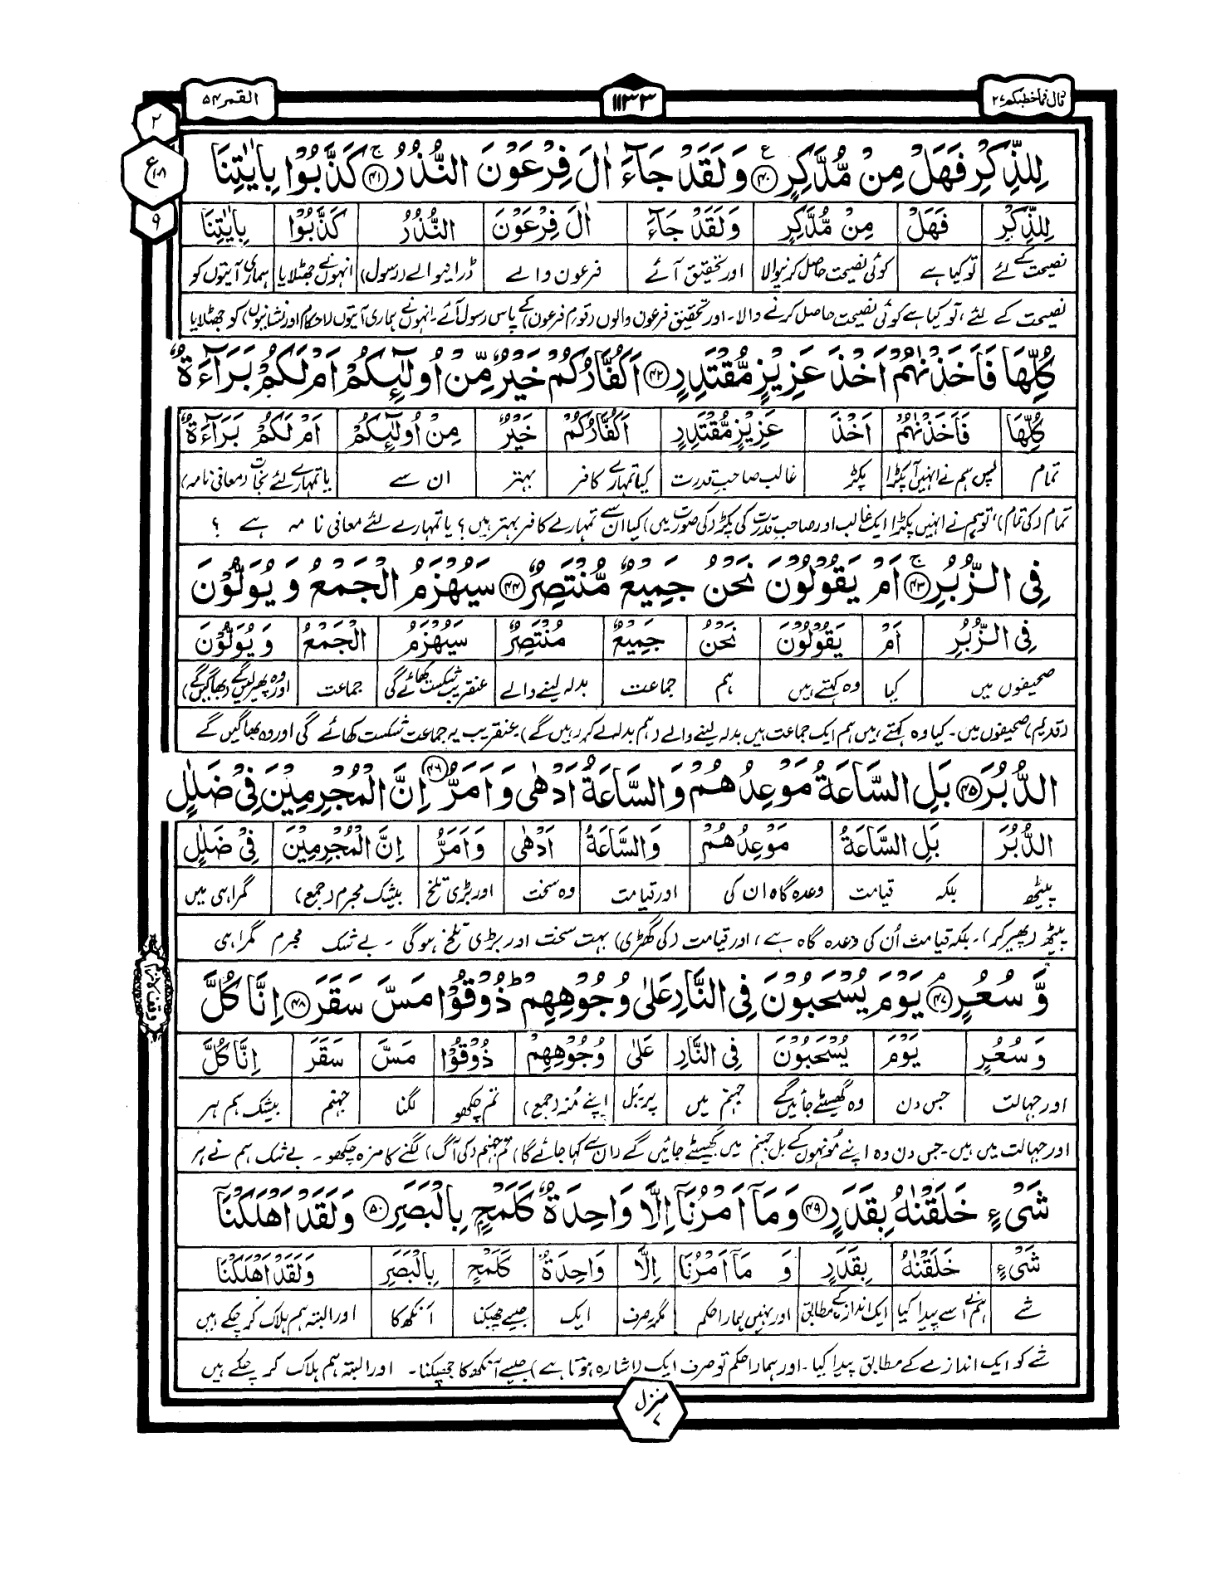 قال فما خطبكم ۲۷
۱۱۳۳
القمر ۵۴
۲
ع
۹
لِلذِّكْرِ فَهَلْ مِنْ مُّدَّكِرٍ ﴿۴۰﴾ وَلَقَدْ جَآءَ اٰلَ فِرْعَوْنَ النُّذُرُ ﴿۴۱﴾ كَذَّبُوْا بِاٰيٰتِنَا
لِلذِّكْرِ فَهَلْ مِنْ مُّدَّكِرٍ وَلَقَدْ جَآءَ اٰلَ فِرْعَوْنَ النُّذُرُ كَذَّبُوْا بِاٰيٰتِنَا
نصیحت کے لئے تو کیا ہے کوئی نصیحت حاصل کرنیوالا اور تحقیق آئے فرعون والے ڈرانیوالے (رسول) انہوں نے جھٹلایا ہماری آیتوں کو
نصیحت کے لئے، تو کیا ہے کوئی نصیحت حاصل کرنے والا۔ اور تحقیق فرعون والوں (قوم فرعون) کے پاس رسول آئے۔ انہوں نے ہماری آیتوں (احکام اور نشانیوں) کو جھٹلایا
كُلِّهَا فَاَخَذْنٰهُمْ اَخْذَ عَزِيْزٍ مُّقْتَدِرٍ ﴿۴۲﴾ اَكُفَّارُكُمْ خَيْرٌ مِّنْ اُولٰٓئِكُمْ اَمْ لَكُمْ بَرَآءَةٌ
كُلِّهَا فَاَخَذْنٰهُمْ اَخْذَ عَزِيْزٍ مُّقْتَدِرٍ اَكُفَّارُكُمْ خَيْرٌ مِنْ اُولٰٓئِكُمْ اَمْ لَكُمْ بَرَآءَةٌ
تمام پس ہم نے انہیں آپکڑا پکڑ غالب صاحبِ قدرت کیا تمہارے کافر بہتر ان سے یا تمہارے لئے نجات (معافی نامہ)
تمام (کی تمام)، تو ہم نے انہیں پکڑا ایک غالب اور صاحبِ قدرت کی پکڑ (کی صورت میں) کیا ان سے تمہارے کافر بہتر ہیں؟ یا تمہارے لئے معافی نامہ ہے ؟
فِى الزُّبُرِ ﴿۴۳﴾ اَمْ يَقُوْلُوْنَ نَحْنُ جَمِيْعٌ مُّنْتَصِرٌ ﴿۴۴﴾ سَيُهْزَمُ الْجَمْعُ وَيُوَلُّوْنَ
فِى الزُّبُرِ اَمْ يَقُوْلُوْنَ نَحْنُ جَمِيْعٌ مُنْتَصِرٌ سَيُهْزَمُ الْجَمْعُ وَيُوَلُّوْنَ
صحیفوں میں کیا وہ کہتے ہیں ہم جماعت بدلہ لینے والے عنقریب شکست کھائے گی جماعت اور وہ پھیر لیں گے (بھاگیں گے)
(قدیم) صحیفوں میں۔ کیا وہ کہتے ہیں ہم ایک جماعت ہیں بدلہ لینے والے (ہم بدلہ لے کر رہیں گے) عنقریب یہ جماعت شکست کھائے گی اور وہ بھاگیں گے
الدُّبُرَ ﴿۴۵﴾ بَلِ السَّاعَةُ مَوْعِدُهُمْ وَالسَّاعَةُ اَدْهٰى وَاَمَرُّ ﴿۴۶﴾ اِنَّ الْمُجْرِمِيْنَ فِىْ ضَلٰلٍ
الدُّبُرَ بَلِ السَّاعَةُ مَوْعِدُهُمْ وَالسَّاعَةُ اَدْهٰى وَاَمَرُّ اِنَّ الْمُجْرِمِيْنَ فِىْ ضَلٰلٍ
پیٹھ بلکہ قیامت وعدہ گاہ ان کی اور قیامت وہ سخت اور بڑی تلخ بیشک مجرم (جمع) گمراہی میں
پیٹھ (پھیر کر)۔ بلکہ قیامت اُن کی وعدہ گاہ ہے، اور قیامت (کی گھڑی) بہت سخت اور بڑی تلخ ہوگی۔ بے شک مجرم گمراہی
وَّسُعُرٍ ﴿۴۷﴾ يَوْمَ يُسْحَبُوْنَ فِى النَّارِ عَلٰى وُجُوْهِهِمْ ؕ ذُوْقُوْا مَسَّ سَقَرَ ﴿۴۸﴾ اِنَّا كُلَّ
وَسُعُرٍ يَوْمَ يُسْحَبُوْنَ فِى النَّارِ عَلٰى وُجُوْهِهِمْ ذُوْقُوْا مَسَّ سَقَرَ اِنَّا كُلَّ
اور جہالت جس دن وہ گھسیٹے جائیں گے جہنم میں پر۔ بَل اپنے مُنہ (جمع) تم چکھو لگنا جہنم بیشک ہم ہر
اور جہالت میں ہیں۔ جس دن وہ اپنے مُونہوں کے بل جہنم میں گھسیٹے جائیں گے (ان سے کہا جائے گا) تم جہنم (کی آگ) لگنے کا مزہ چکھو۔ بے شک ہم نے ہر
شَىْءٍ خَلَقْنٰهُ بِقَدَرٍ ﴿۴۹﴾ وَمَآ اَمْرُنَآ اِلَّا وَاحِدَةٌ كَلَمْحٍۭ بِالْبَصَرِ ﴿۵۰﴾ وَلَقَدْ اَهْلَكْنَآ
شَىْءٍ خَلَقْنٰهُ بِقَدَرٍ وَ مَآ اَمْرُنَآ اِلَّا وَاحِدَةٌ كَلَمْحٍ بِالْبَصَرِ وَلَقَدْ اَهْلَكْنَآ
شے ہم نے اسے پیدا کیا ایک اندازے کے مطابق اور نہیں ہمارا حکم مگر۔ صرف ایک جیسے جھپکنا آنکھ کا اور البتہ ہم ہلاک کر چکے ہیں
شے کو ایک اندازے کے مطابق پیدا کیا۔ اور ہمارا حکم تو صرف ایک (اشارہ ہوتا ہے) جیسے آنکھ کا جھپکنا۔ اور البتہ ہم ہلاک کر چکے ہیں
منزل ۷